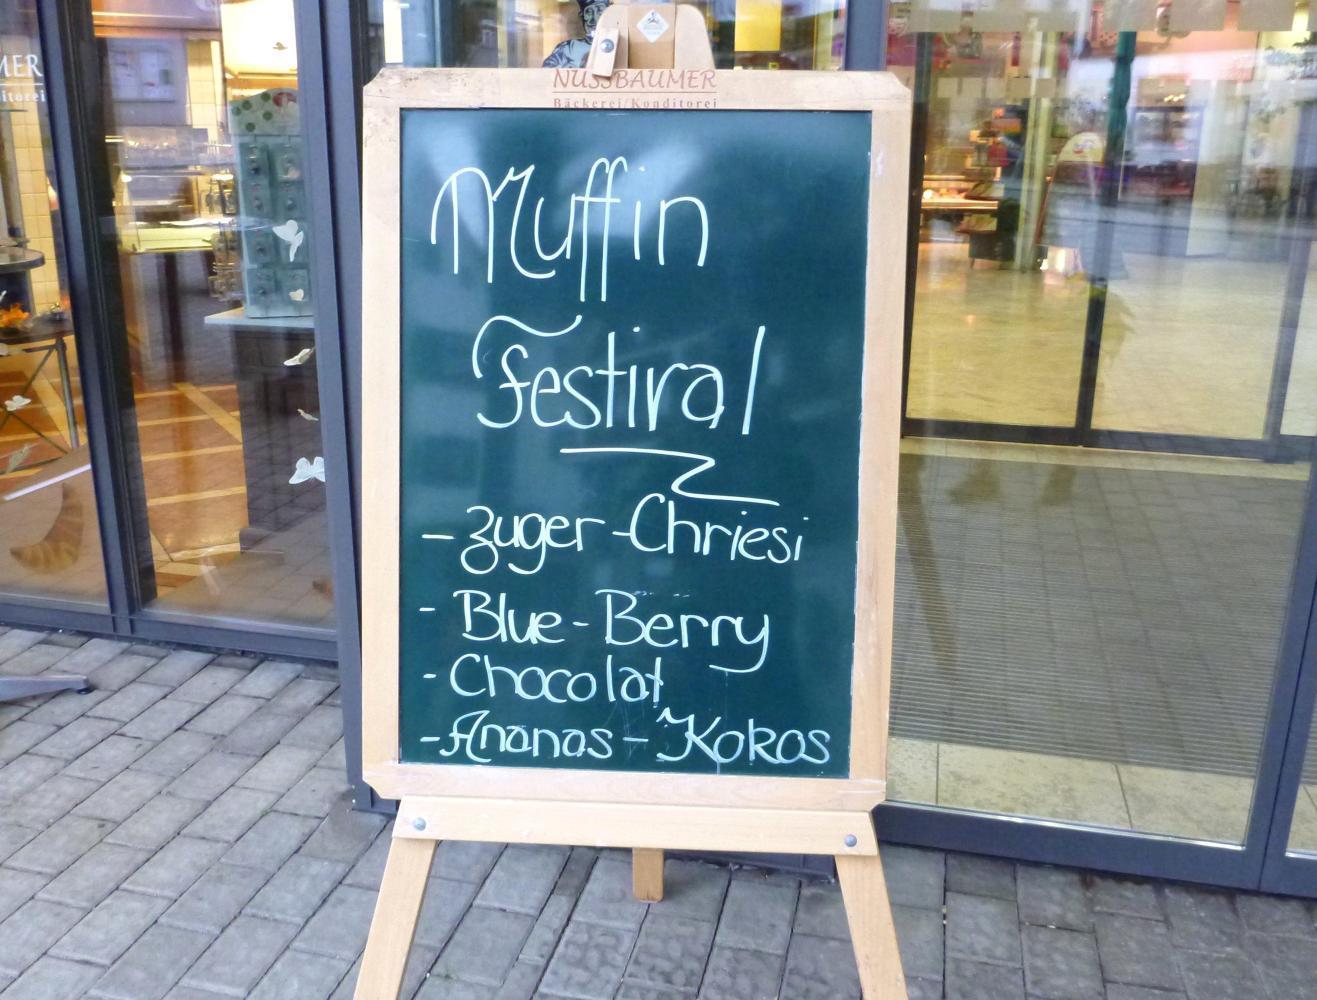 MER
itorei
NUSSBAUMER
Bäckerei/Konditorei
Muffin
Festival
- Zuger-Chriesi
- Blue-Berry
- Chocolat
- Ananas - Kokos